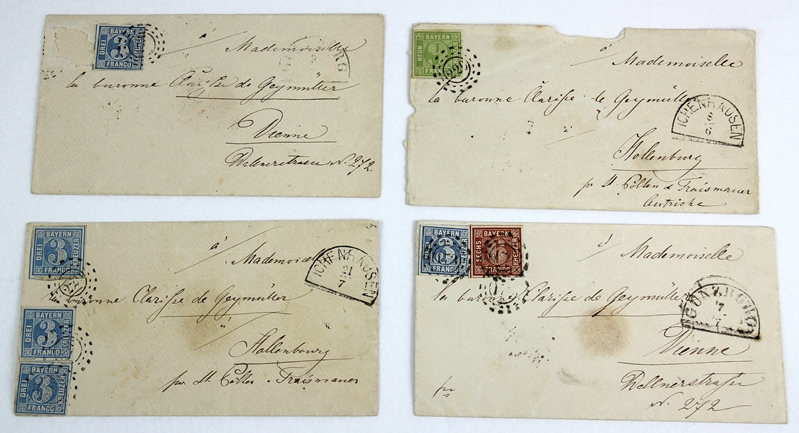 BAYERN
DREI
3
à
Mademoiselle
la baronne Clarisse de Geymüller
Vienne
N. 272.
BAYERN
NEUN
9
FRANCO
à
Mademoiselle
la baronne Clarisse de Geymüller
ICHENHAUSEN
8
6
Hollenburg
pr St. Pölten & Traismauer
Autriche
BAYERN
DREI
KREUZER
3
FRANCO
à
Mademoiselle
ICHENHAUSEN
21
7
la baronne Clarisse de Geymüller
BAYERN
DREI
KREUZER
3
FRANCO
Hollenbourg
BAYERN
DREI
KREUZER
3
FRANCO
par St. Pölten - Traismauer
BAYERN
DREI
KREUZER
3
FRANCO
BAYERN
SECHS
KREUZER
6
FRANCO
à
Mademoiselle
la baronne Clarisse de Geymüller
GÜNZBURG
7
Vienne
N. 272